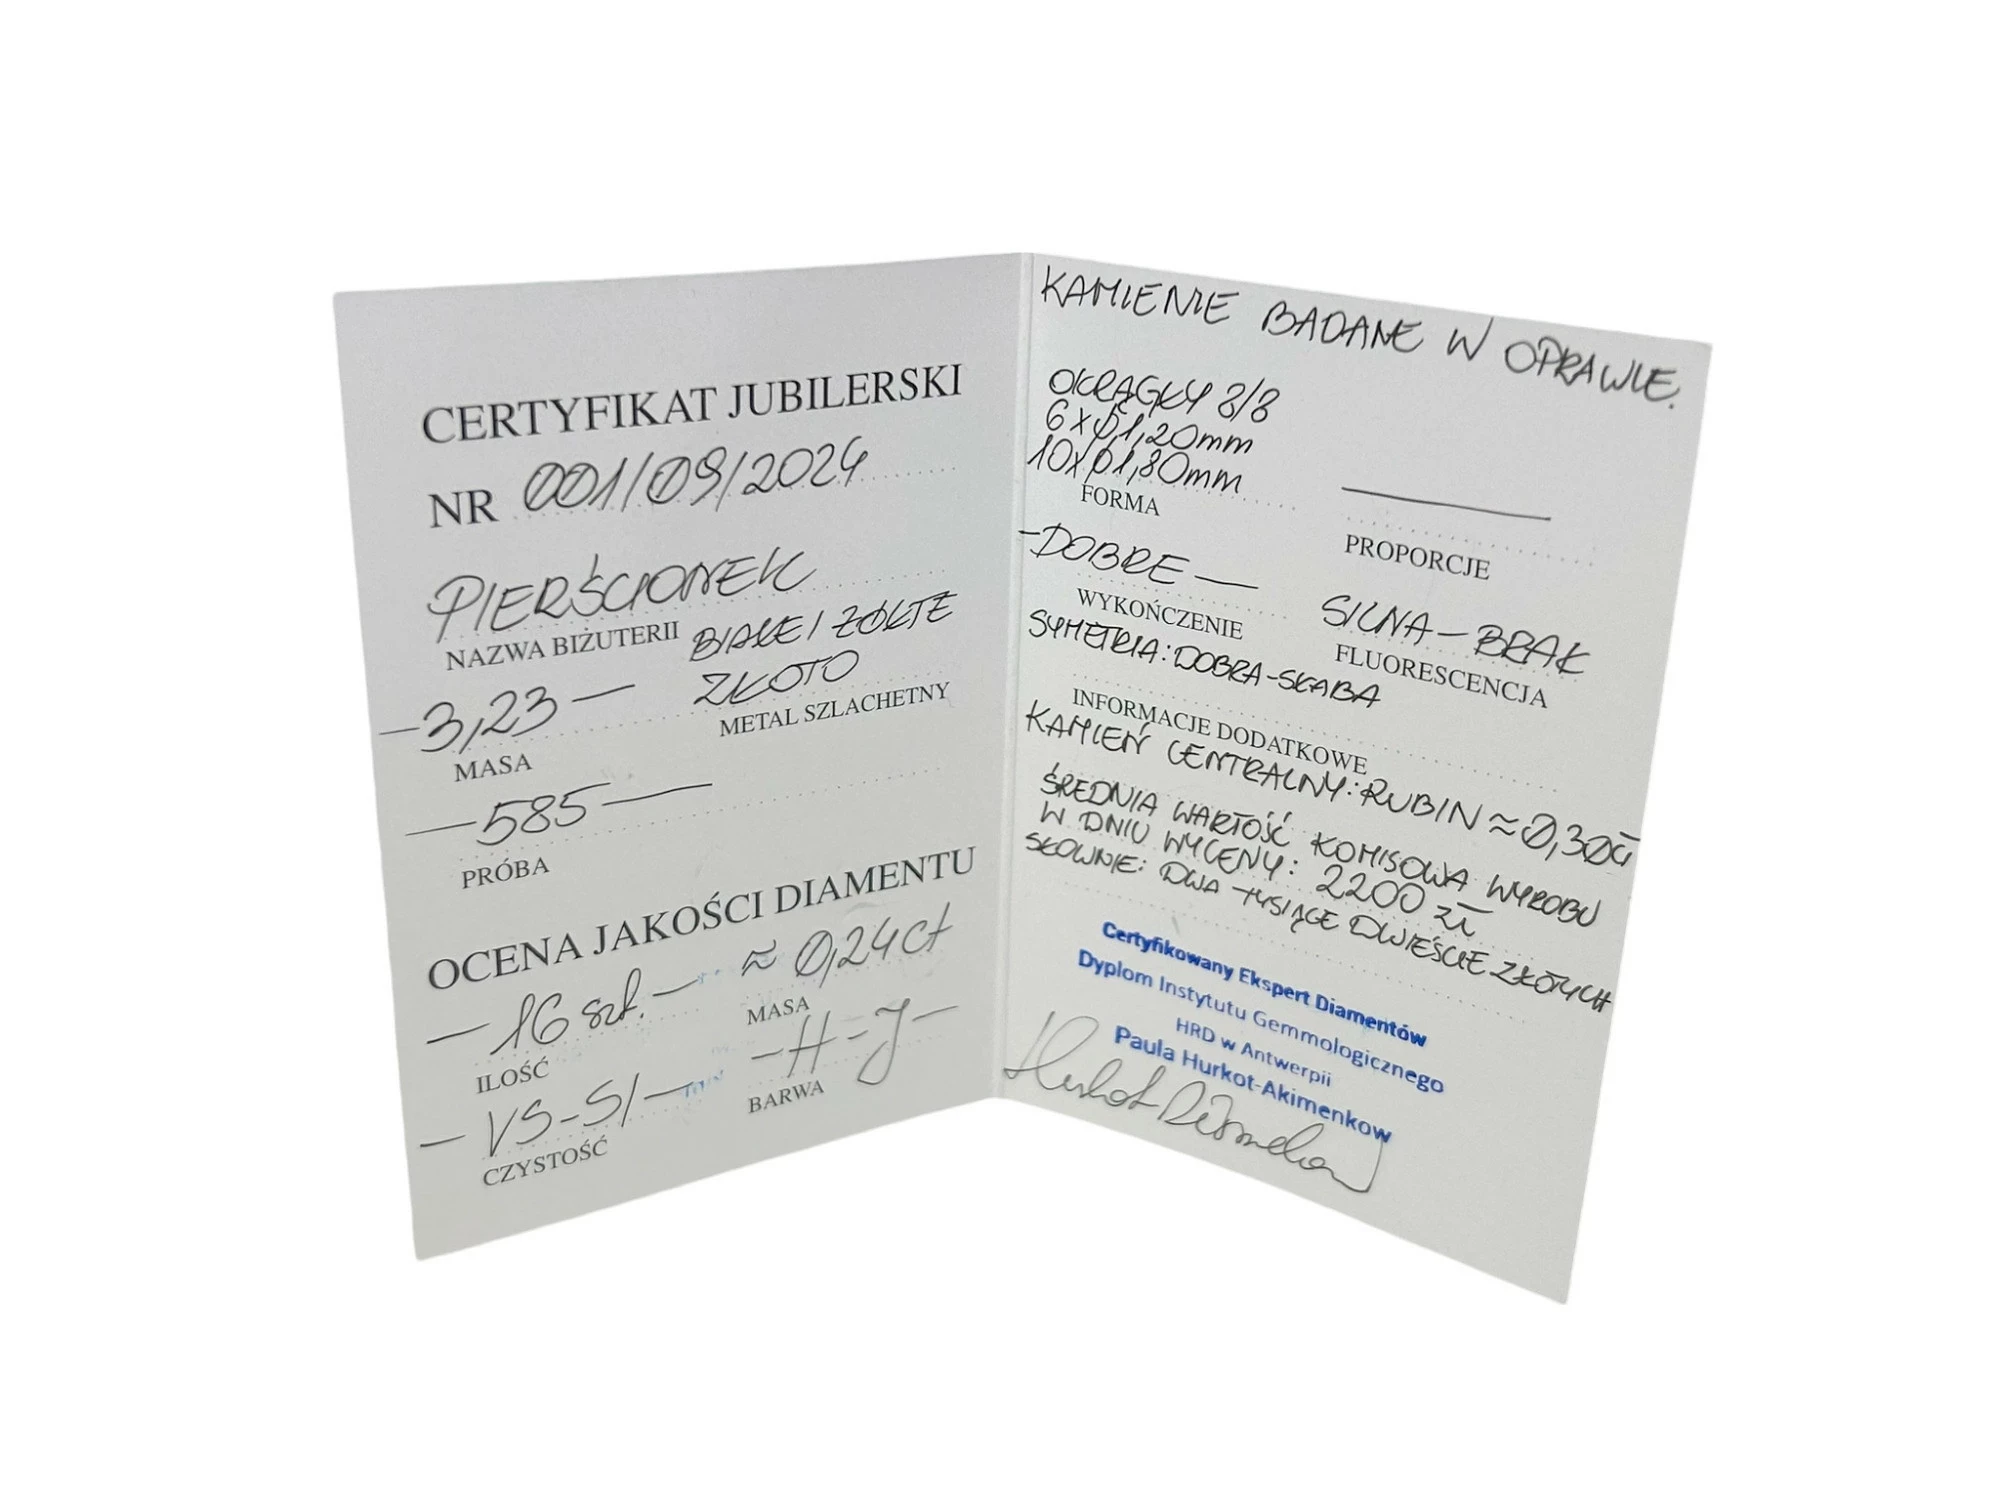 CERTYFIKAT JUBILERSKI
NR 001/09/2024
PIERŚCIONEK
NAZWA BIŻUTERII
BIAŁE I ŻÓŁTE
ZŁOTO
METAL SZLACHETNY
-3,23-
MASA
-585-
PRÓBA
OCENA JAKOŚCI DIAMENTU
-16 szt.-
ILOŚĆ
≈ 0,24ct
MASA
-VS-SI-
CZYSTOŚĆ
-H-J-
BARWA
KAMIENIE BADANE W OPRAWIE.
OKRĄGŁY 8/8
6xϕ1,20mm
10xϕ1,80mm
FORMA
PROPORCJE
-DOBRE-
WYKOŃCZENIE
SILNA-BRAK
FLUORESCENCJA
SYMETRIA: DOBRA-SŁABA
INFORMACJE DODATKOWE
KAMIEŃ CENTRALNY: RUBIN ≈0,30ct
ŚREDNIA WARTOŚĆ KOMISOWA WYROBU
W DNIU WYCENY: 2200 zł
SŁOWNIE: DWA TYSIĄCE DWIEŚCIE ZŁOTYCH
Certyfikowany Ekspert Diamentów
Dyplom Instytutu Gemmologicznego
HRD w Antwerpii
Paula Hurkot-Akimenkow